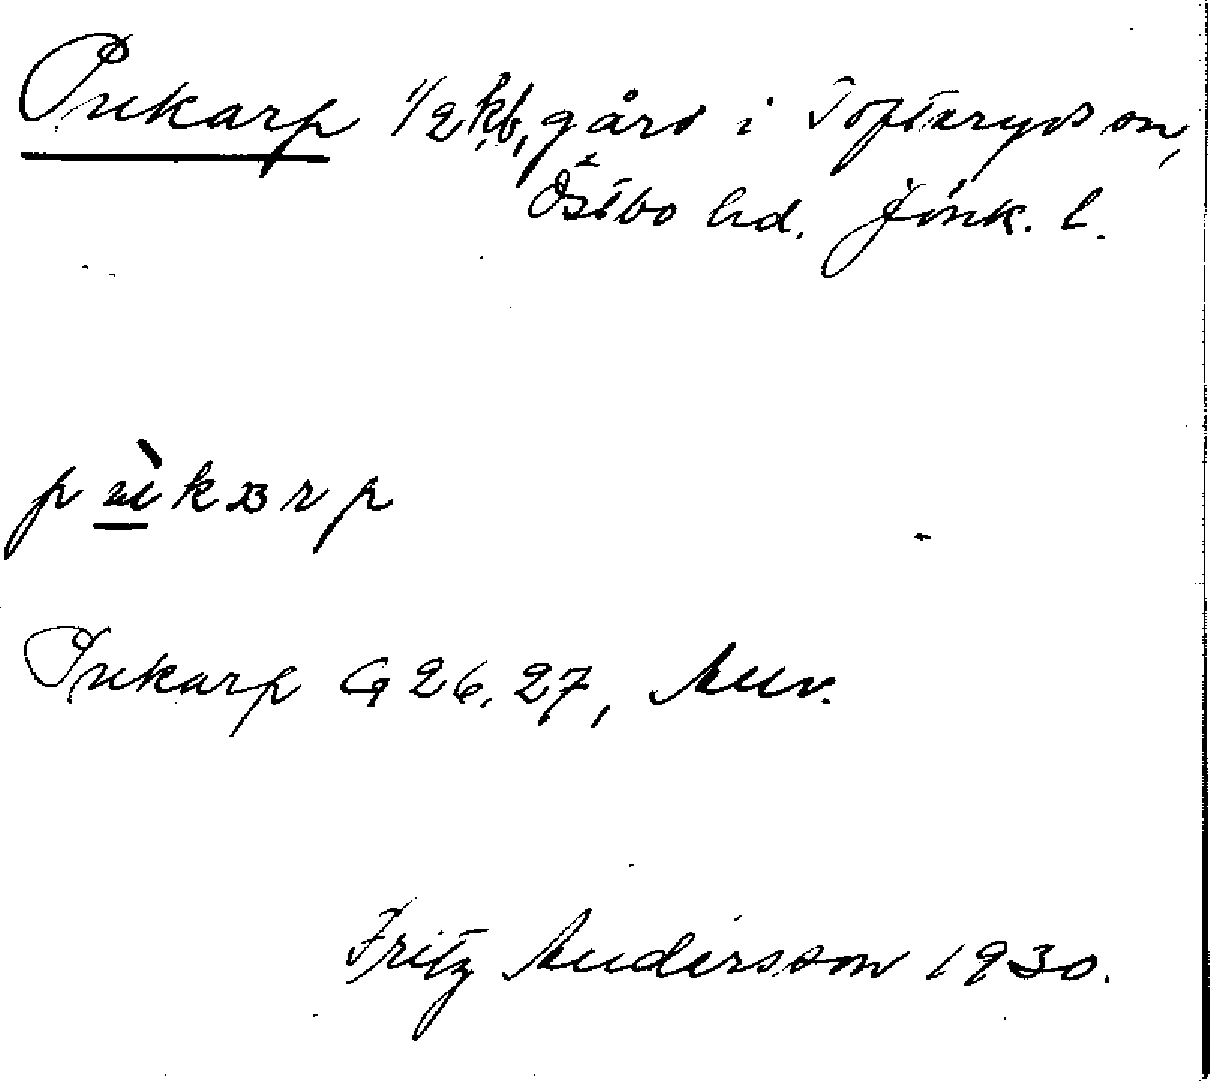 Pukarp 1/2 kb, gård i Tofteryds sn,
Östbo hd. Jönk. l.
pùkarp
Pukarp G 26. 27, Auv.
Fritz Andersson 1930.